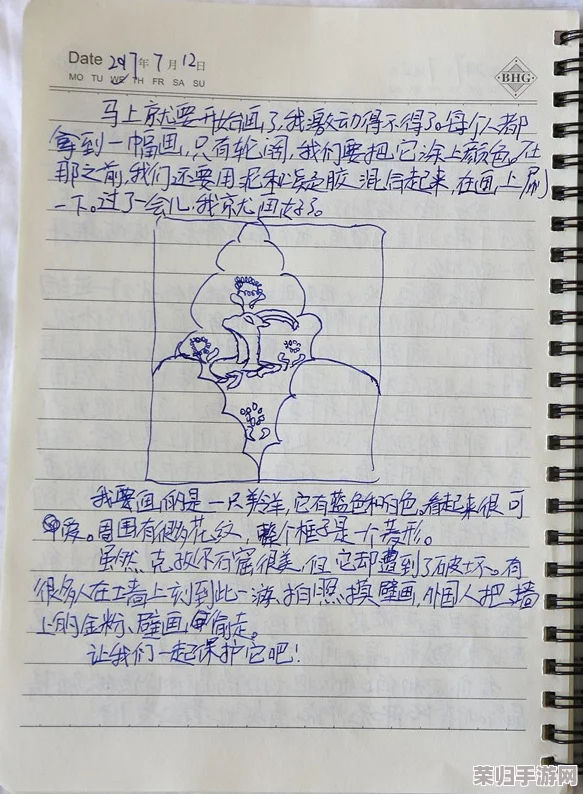 Date 2017年7月12日
MO TU WE TH FR SA SU
BHG
马上就要开始画了,我激动得不得了。每个人都
拿到一幅画,只有轮阔,我们要把它涂上颜色。在
那之前,我们还要用泥和凝胶混合起来,在画上刷
一下。过了一会儿,我就画好了。
我要画的是一只羚羊,它有蓝色和白色。看起来很可
爱。周围有很多花纹,整个框子是一个菱形。
虽然克孜尔石窟很美,但它却遭到了破坏。有
很多人在土墙上刻到此一游、拍照、摸壁画,外国人把墙
上的金粉、壁画偷走。
让我们一起保护它吧!
荣归手游网